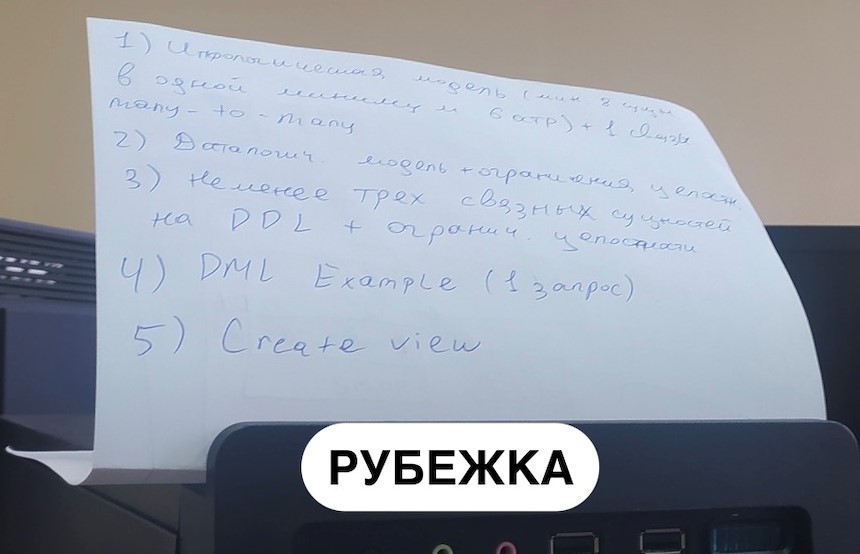 1) Инфологическая модель (мин 8 сущн
в одной минимум 8 атр) + 1 связь
many-to-many
2) Даталогич. модель + ограничения целостн.
3) Не менее трех связных сущностей
на DDL + огранич. целостности
4) DML Example (1 запрос)
5) Create view
РУБЕЖКА